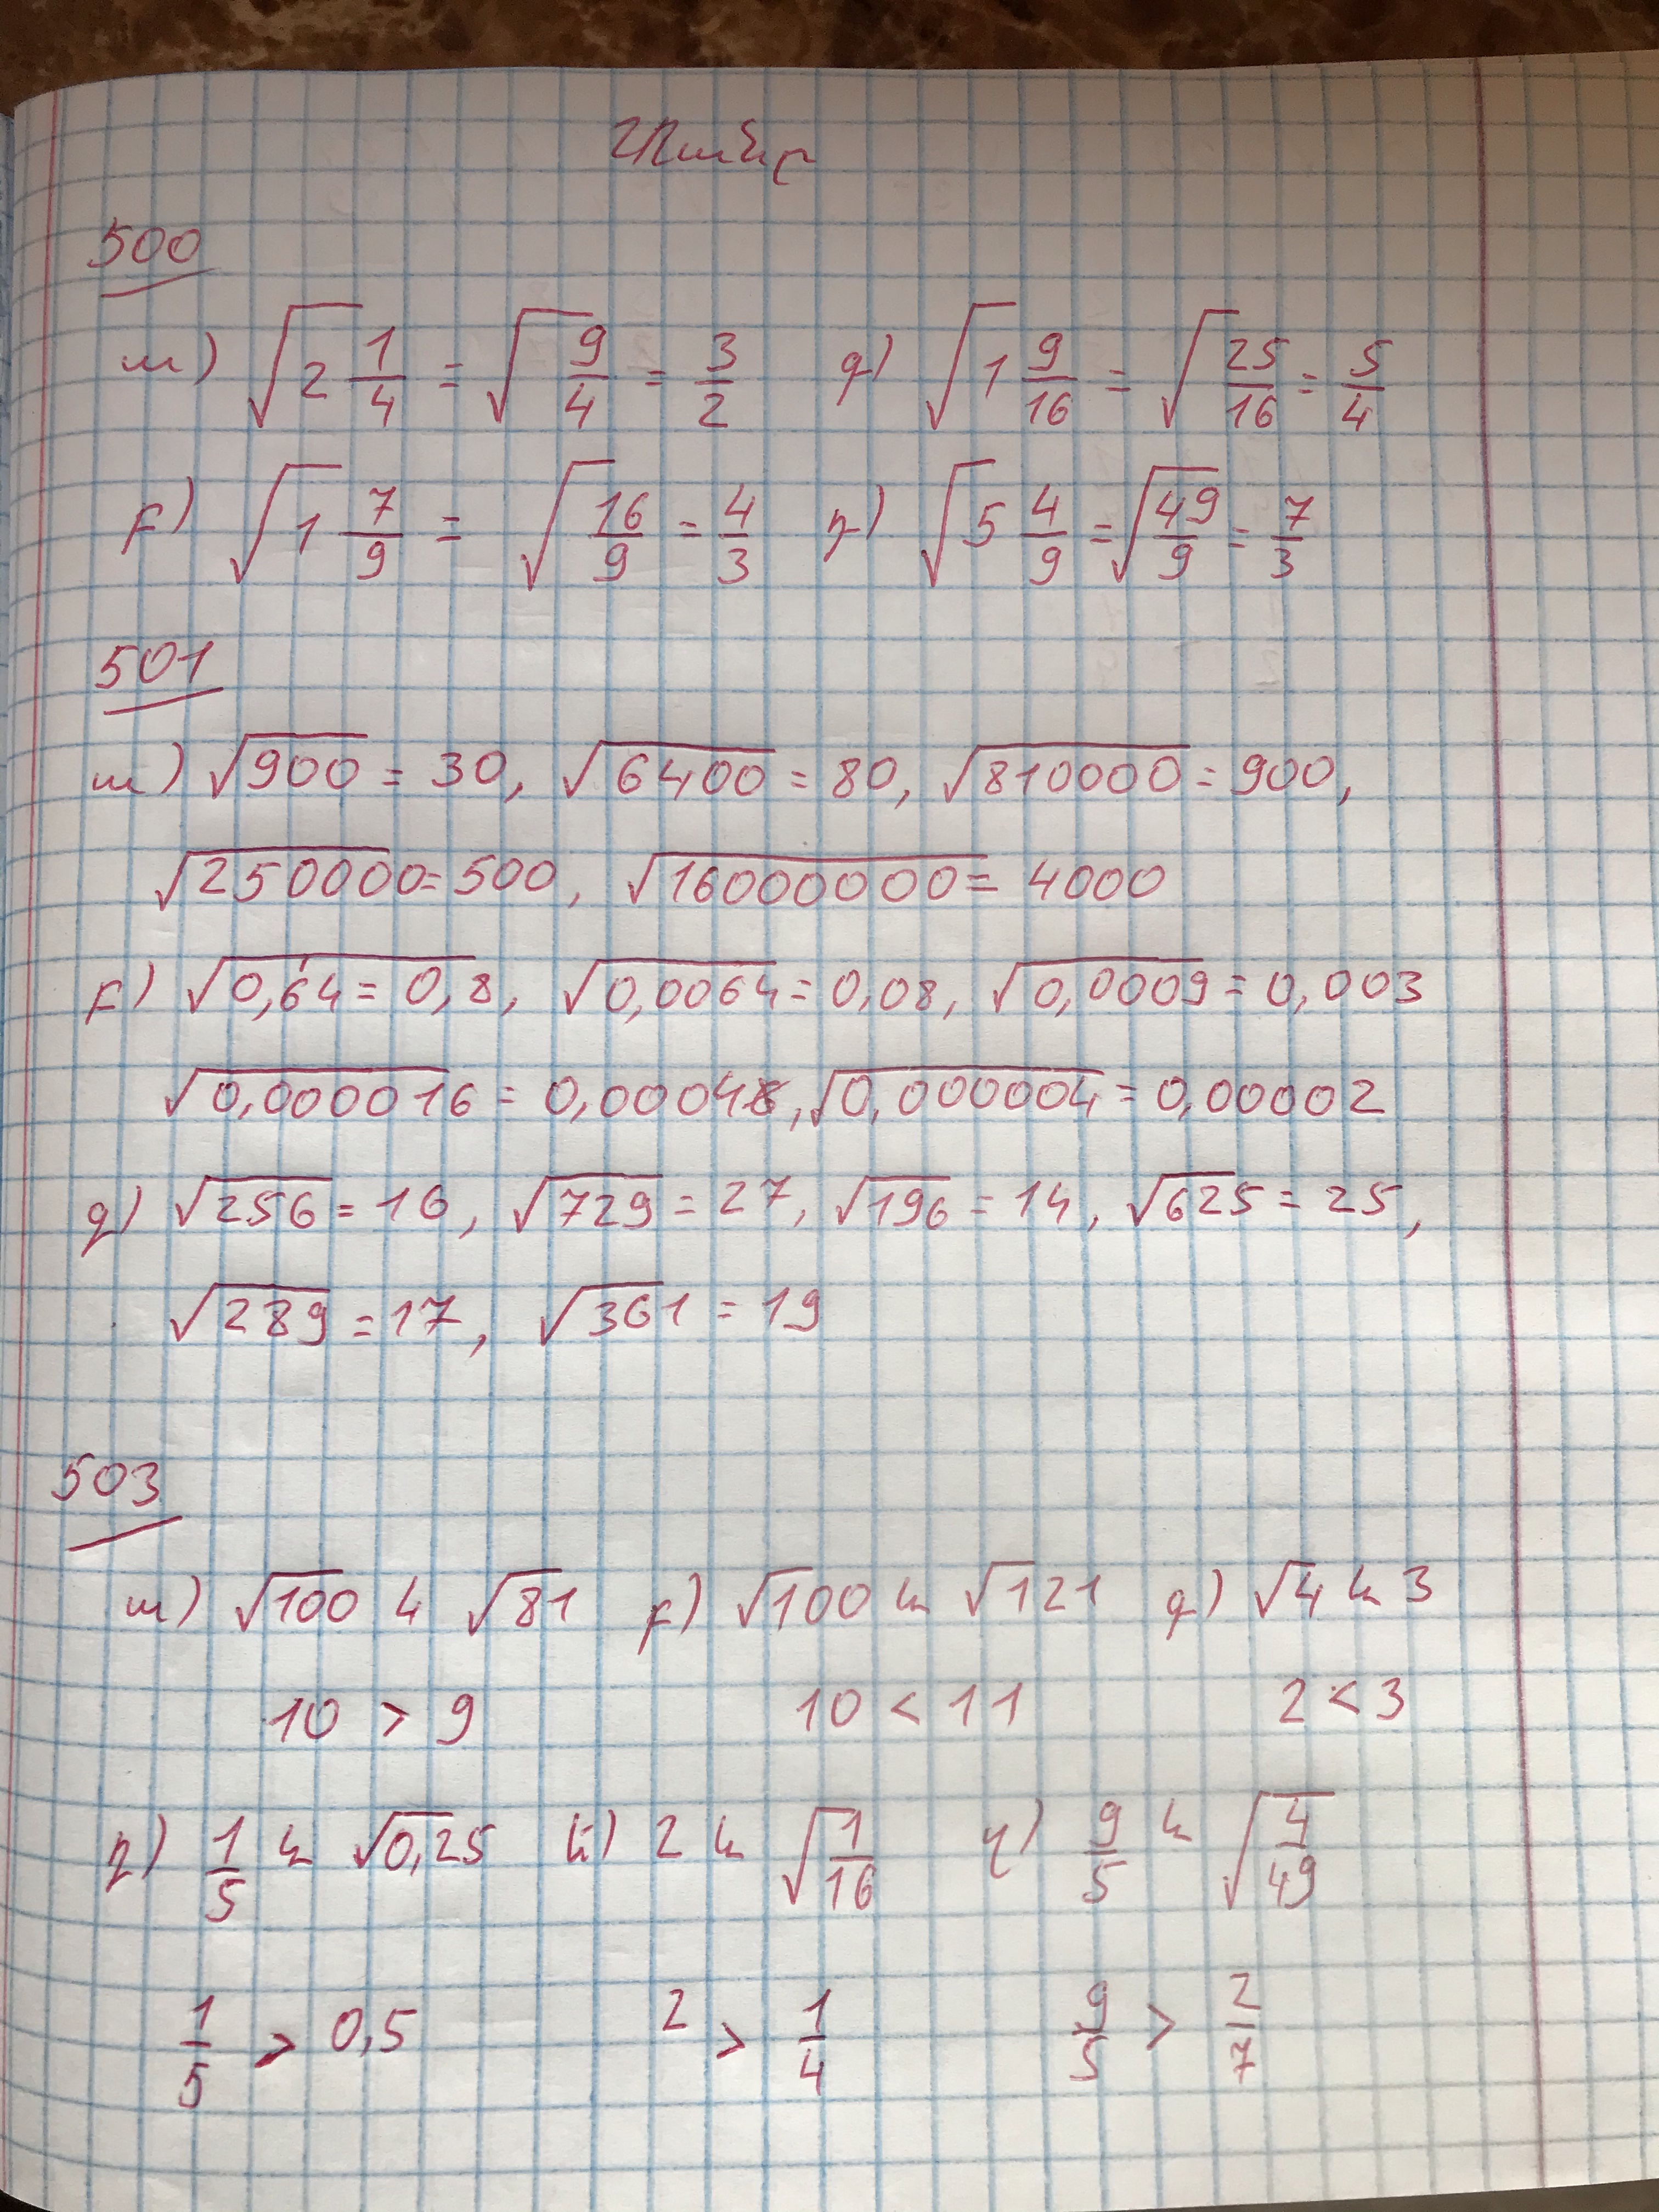 500
ա) √2 1/4 = √9/4 = 3/2 գ) √1 9/16 = √25/16 = 5/4
բ) √1 7/9 = √16/9 = 4/3 դ) √5 4/9 = √49/9 = 7/3
501
ա) √900 = 30, √6400 = 80, √810000 = 900,
√250000 = 500, √16000000 = 4000
բ) √0,64 = 0,8, √0,0064 = 0,08, √0,0009 = 0,003
√0,000016 = 0,0004, √0,000004 = 0,00002
գ) √256 = 16, √729 = 27, √196 = 14, √625 = 25,
√289 = 17, √361 = 19
503
ա) √100 և √81 բ) √100 և √121 գ) √4 և 3
10 > 9 10 < 11 2 < 3
դ) 1/5 և √0,25 ե) 2 և √1/16 զ) 9/5 և √4/49
1/5 > 0,5 2 > 1/4 9/5 > 2/7